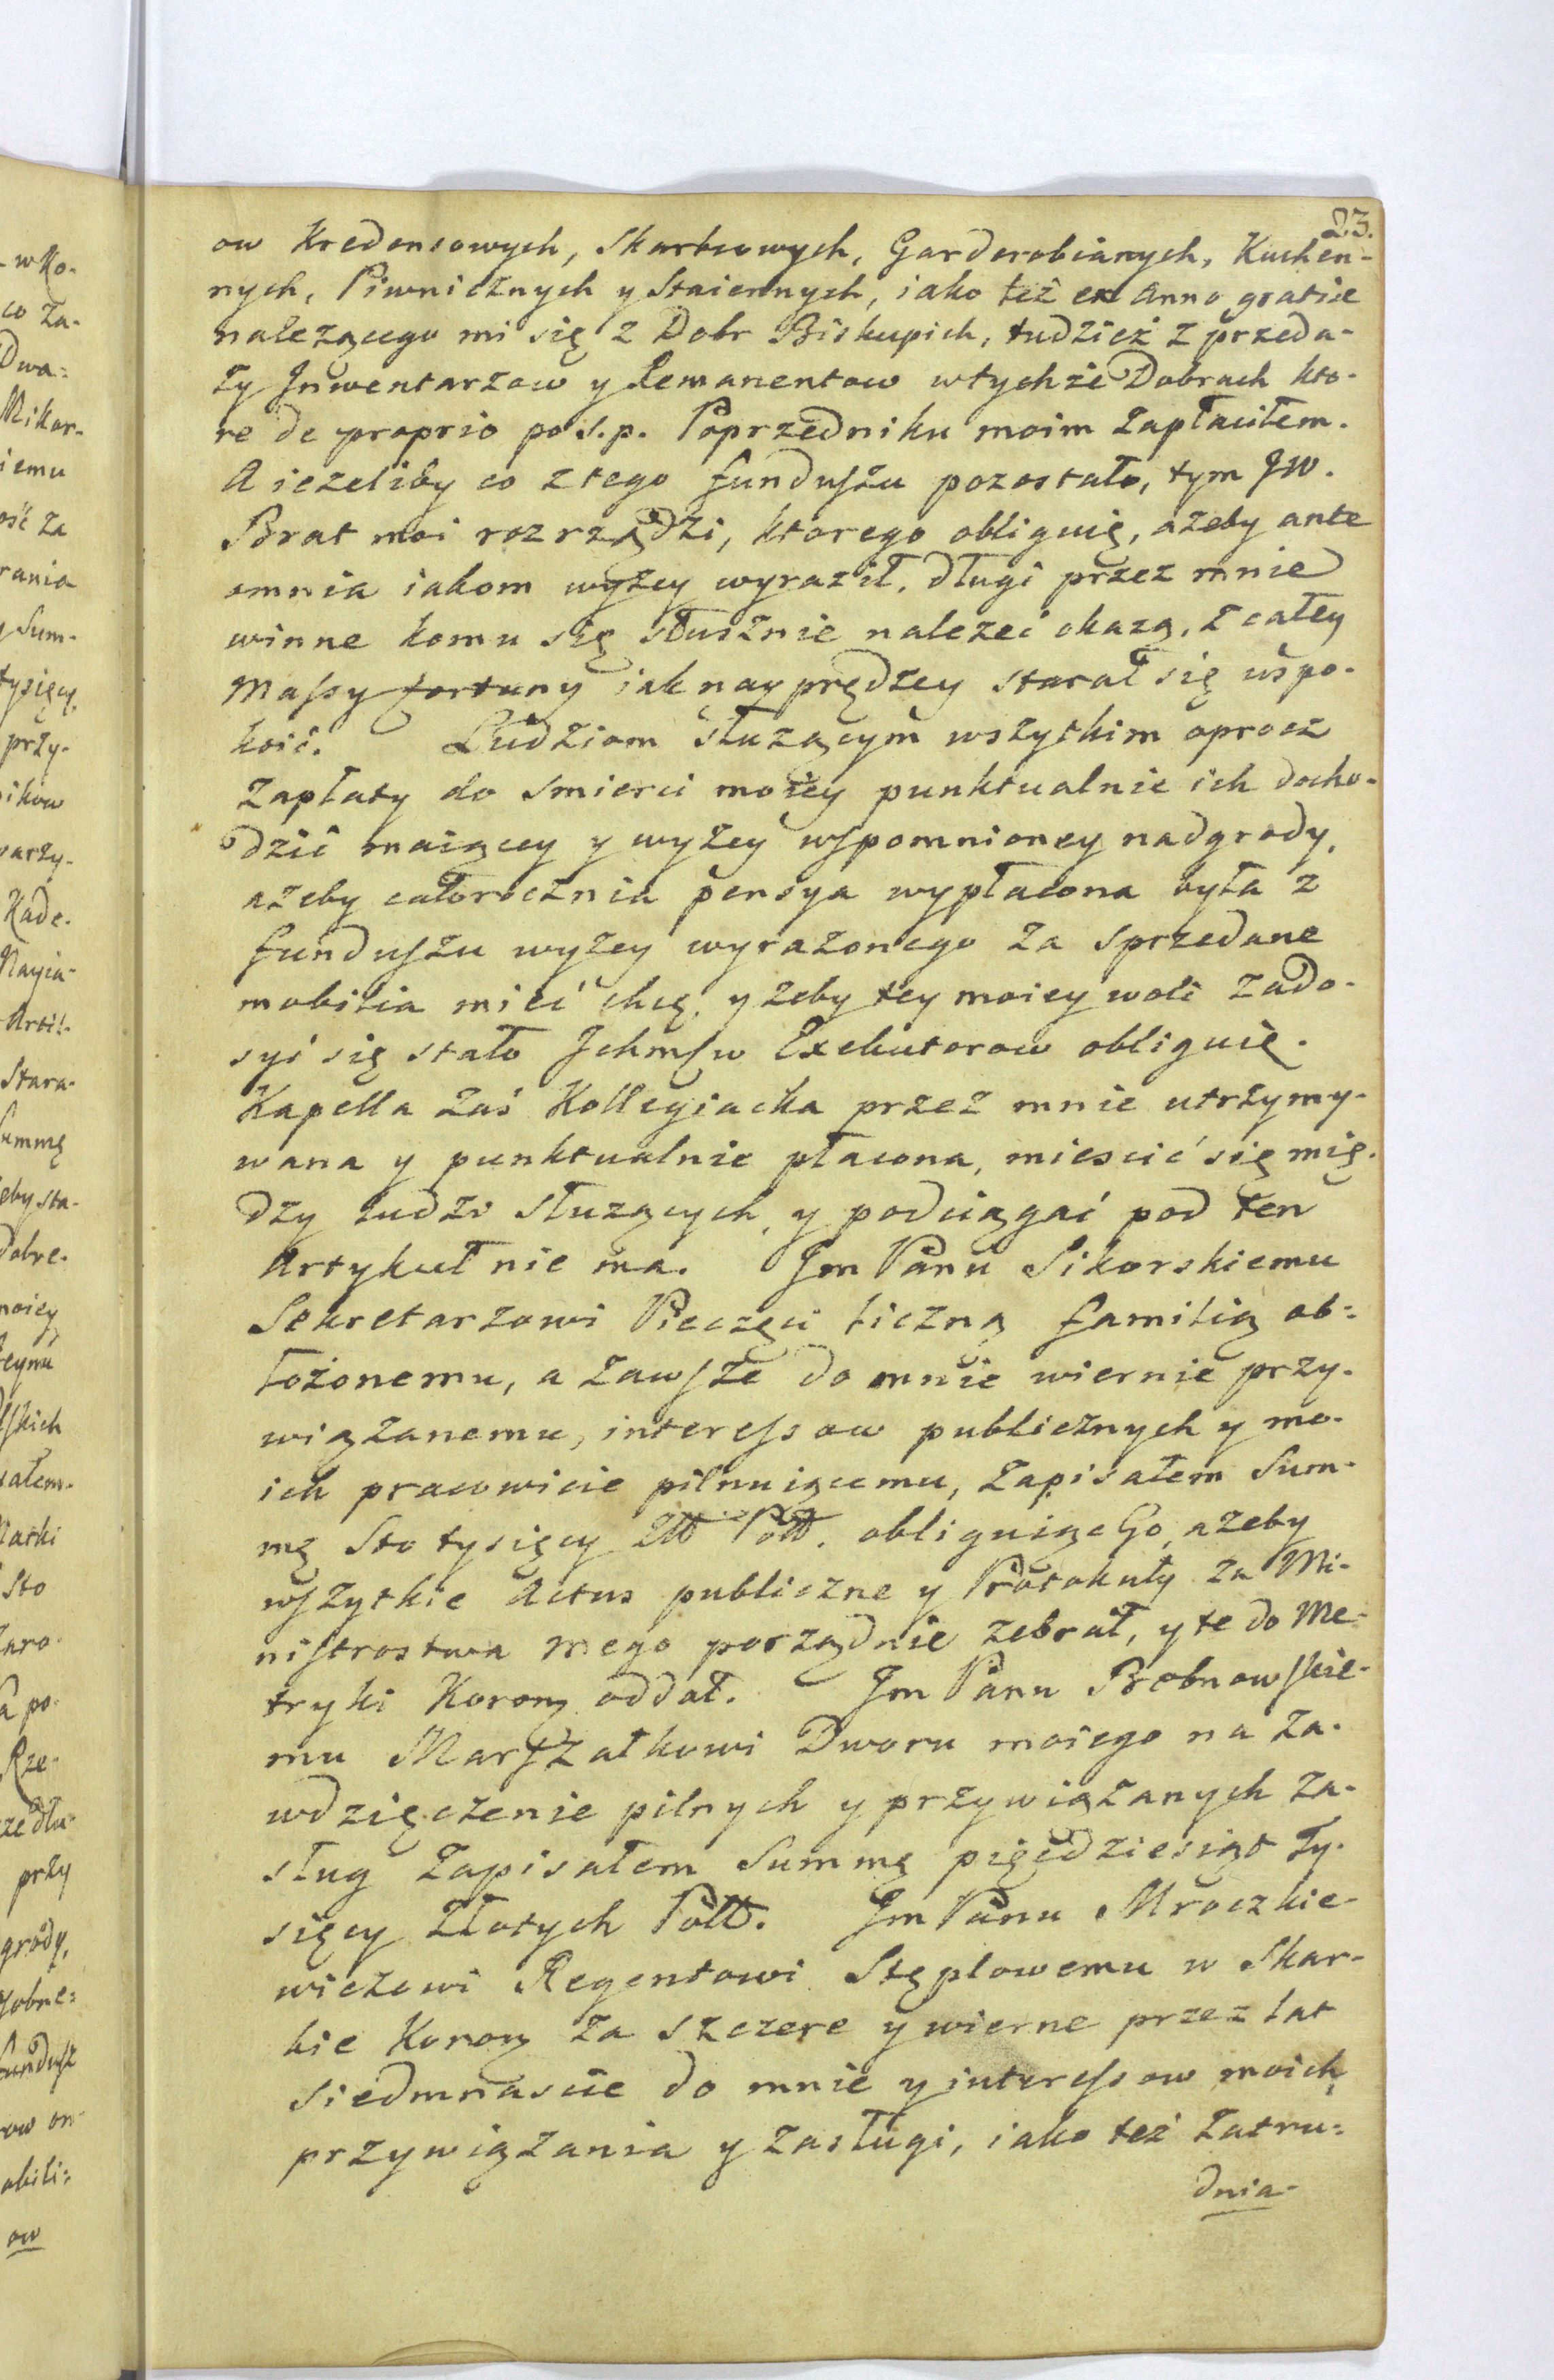 23.
ow Kredensowych, Skarbcowych, Garderobianych, Kuchen-
nych, Piwnicznych y Staiennych, iako też ex Anno gratiæ
nalezącego mi się z Dobr Biskupich, tudzież z przeda-
ży Inwentarzow y Remanentow wtychże Dobrach kto-
re de proprio po s.p. Poprzedniku moim zapłaciłem.
A iezeliby co z tego funduszu pozostało, tym JW.
Brat moi rozrządzi, ktorego obliguię, ażeby ante
omnia iakom wyżey wyraził, długi przez mnie
winne komu się słusznie należeć okażą, z całey
Massy fortuny iak nayprędzey starał się uspo-
koić. Ludziom służącym wszytkim oprocz
zapłaty do smierci moiey punktualnie ich docho-
dzić maiącey y wyżey wspomnioney nadgrody,
ażeby całorocznia pensya wypłacona była z
funduszu wyżey wyrażonego za sprzedane
mobilia mieć chcę, y żeby tey moiey woli zado-
syć się stało Ichmsw Exekutorow obliguię.
Kapella zaś Kollegiacka przez mnie utrzymy-
wana y punktualnie płacona, miescić się mię-
dzy ludzi służących, y podciągać pod ten
Artykuł nie ma. Jm Panu Sikorskiemu
Sekretarzowi Pieczęci liczną familią ob-
łożonemu, a zawsze do mnie wiernie przy-
wiązanemu, interessow publicznych y mo-
ich pracowicie pilnuiącemu, zapisałem Sum-
mę Sto tysięcy Złł Poll. obliguiąc Go, ażeby
wszytkie Actus publiczne y Protokuły za Mi-
nistrostwa mego porządnie zebrał, y te do Me-
tryki Korony oddał. Jm Panu Bobnowskie-
mu Marszałkowi Dworu moiego na za-
wdzięczenie pilnych y przywiązanych za-
sług zapisałem Summę pięćdziesiąt ty-
sięcy Złotych Poll. Jm Panu Mroczkie-
wiczowi Regentowi Stęplowemu w Skar-
bie Korony za szczere y wierne przez lat
siedmnascie do mnie y interessow moich
przywiązania y zasługi, iako też zatru-
dnia-